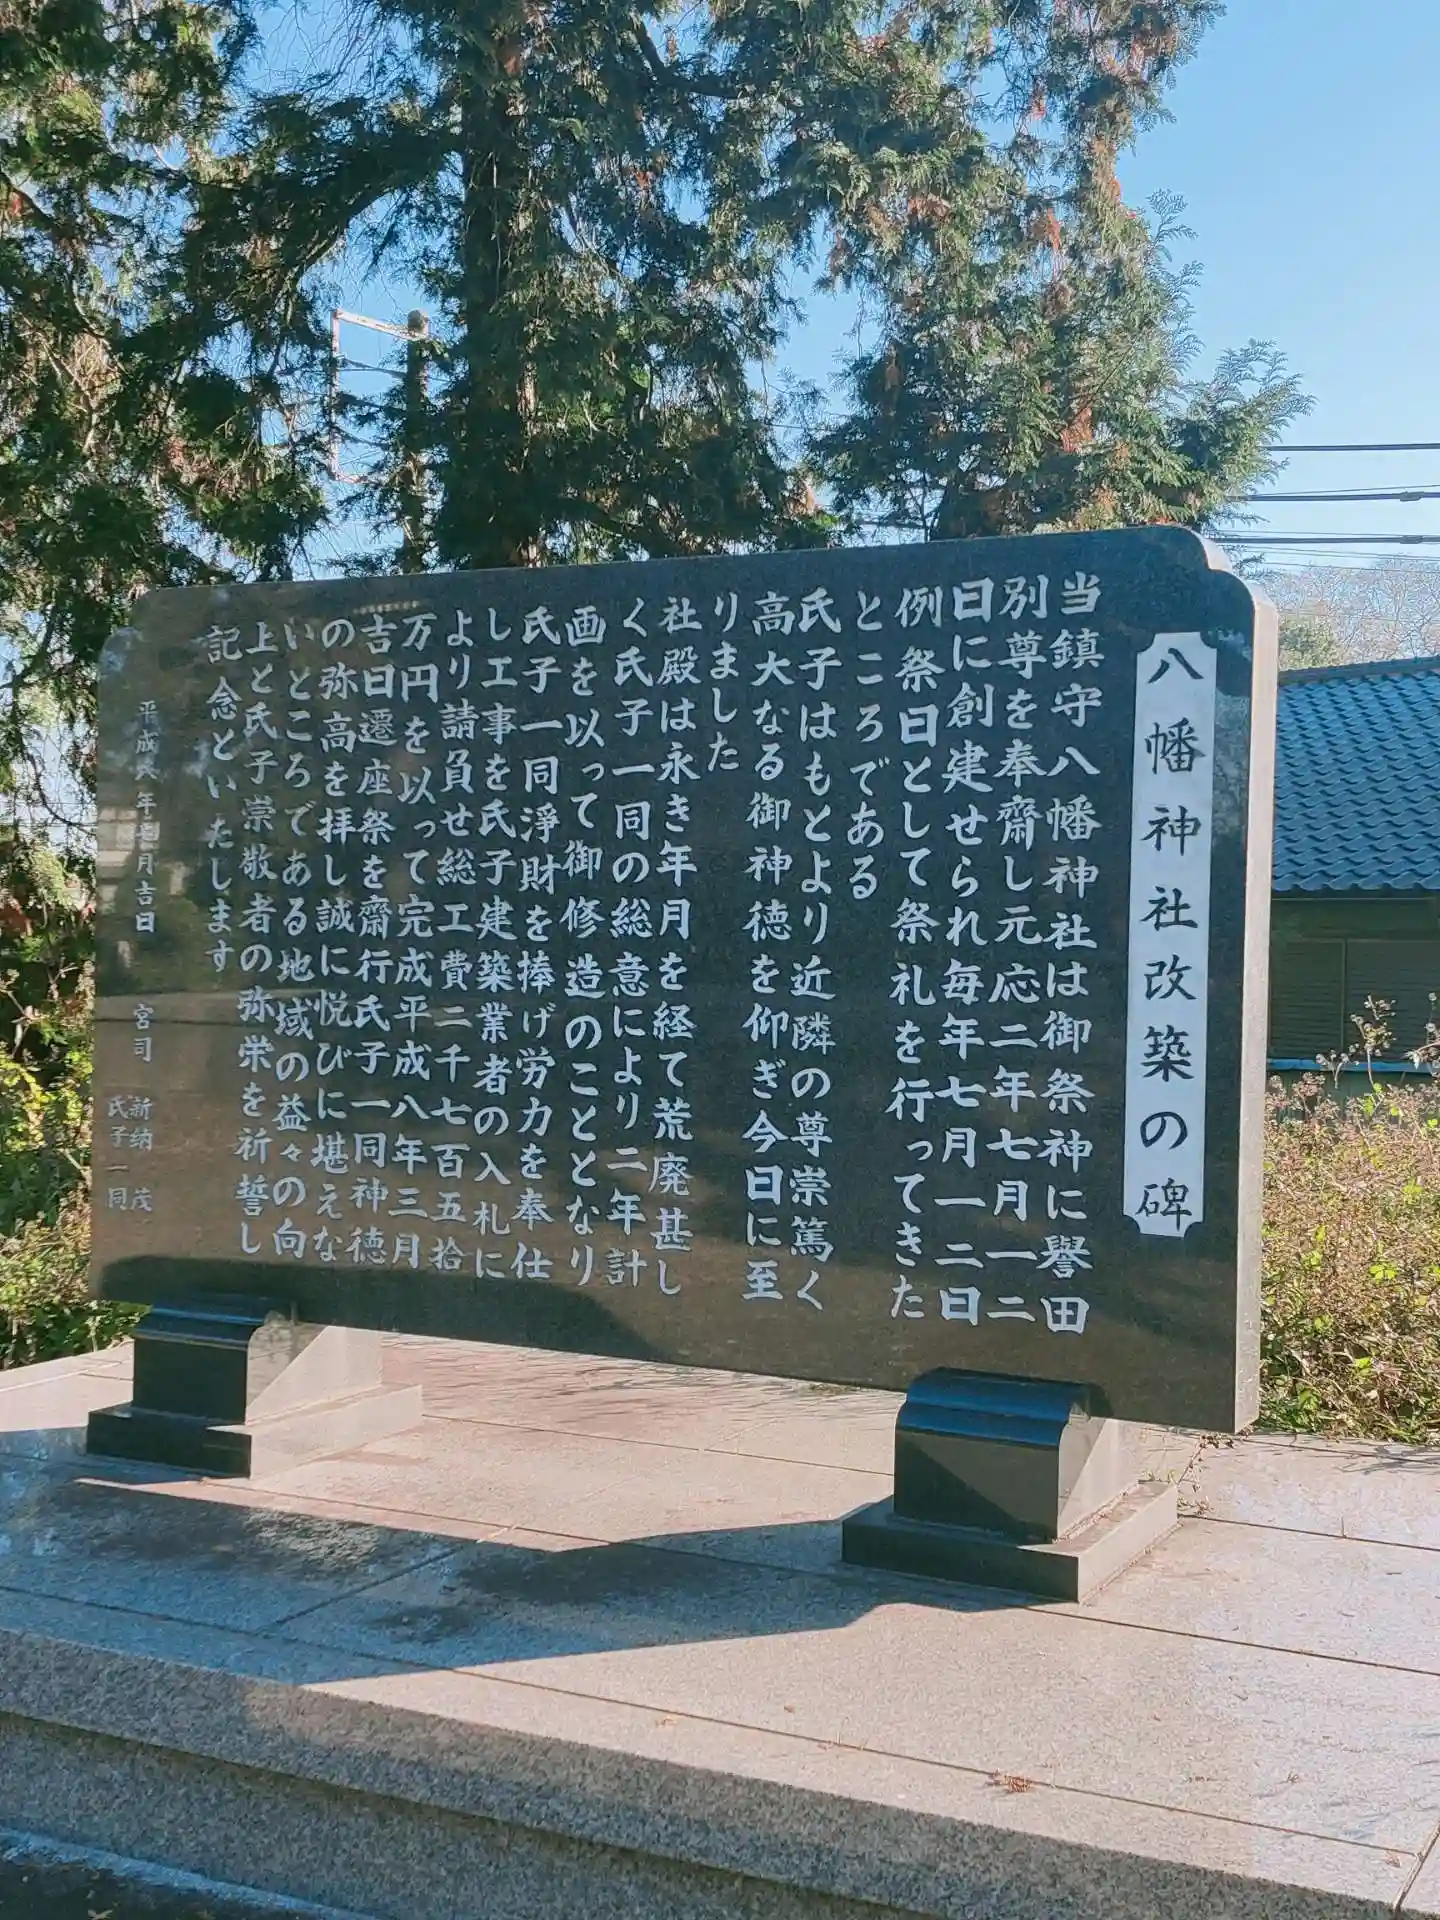 八幡神社改築の碑
当鎮守八幡神社は御祭神に譽田
別尊を奉齋し元応二年七月一二
日に創建せられ毎年七月一二日
例祭日として祭礼を行ってきた
ところである
氏子はもとより近隣の尊崇篤く
高大なる御神徳を仰ぎ今日に至
りました
社殿は永き年月を経て荒廃甚し
く氏子一同の総意により二年計
画を以って御修造のこととなり
氏子一同淨財を捧げ労力を奉仕
し工事を氏子建築業者の入札に
より請負せ総工費二千七百五拾
万円を以って完成平成八年三月
吉日遷座祭を齋行氏子一同神徳
の弥高を拝し誠に悦びに堪えな
いところである地域の益々の向
上と氏子崇敬者の弥栄を祈誓し
記念といたします
平成 年 月吉日 宮司 新納 茂
氏子一同